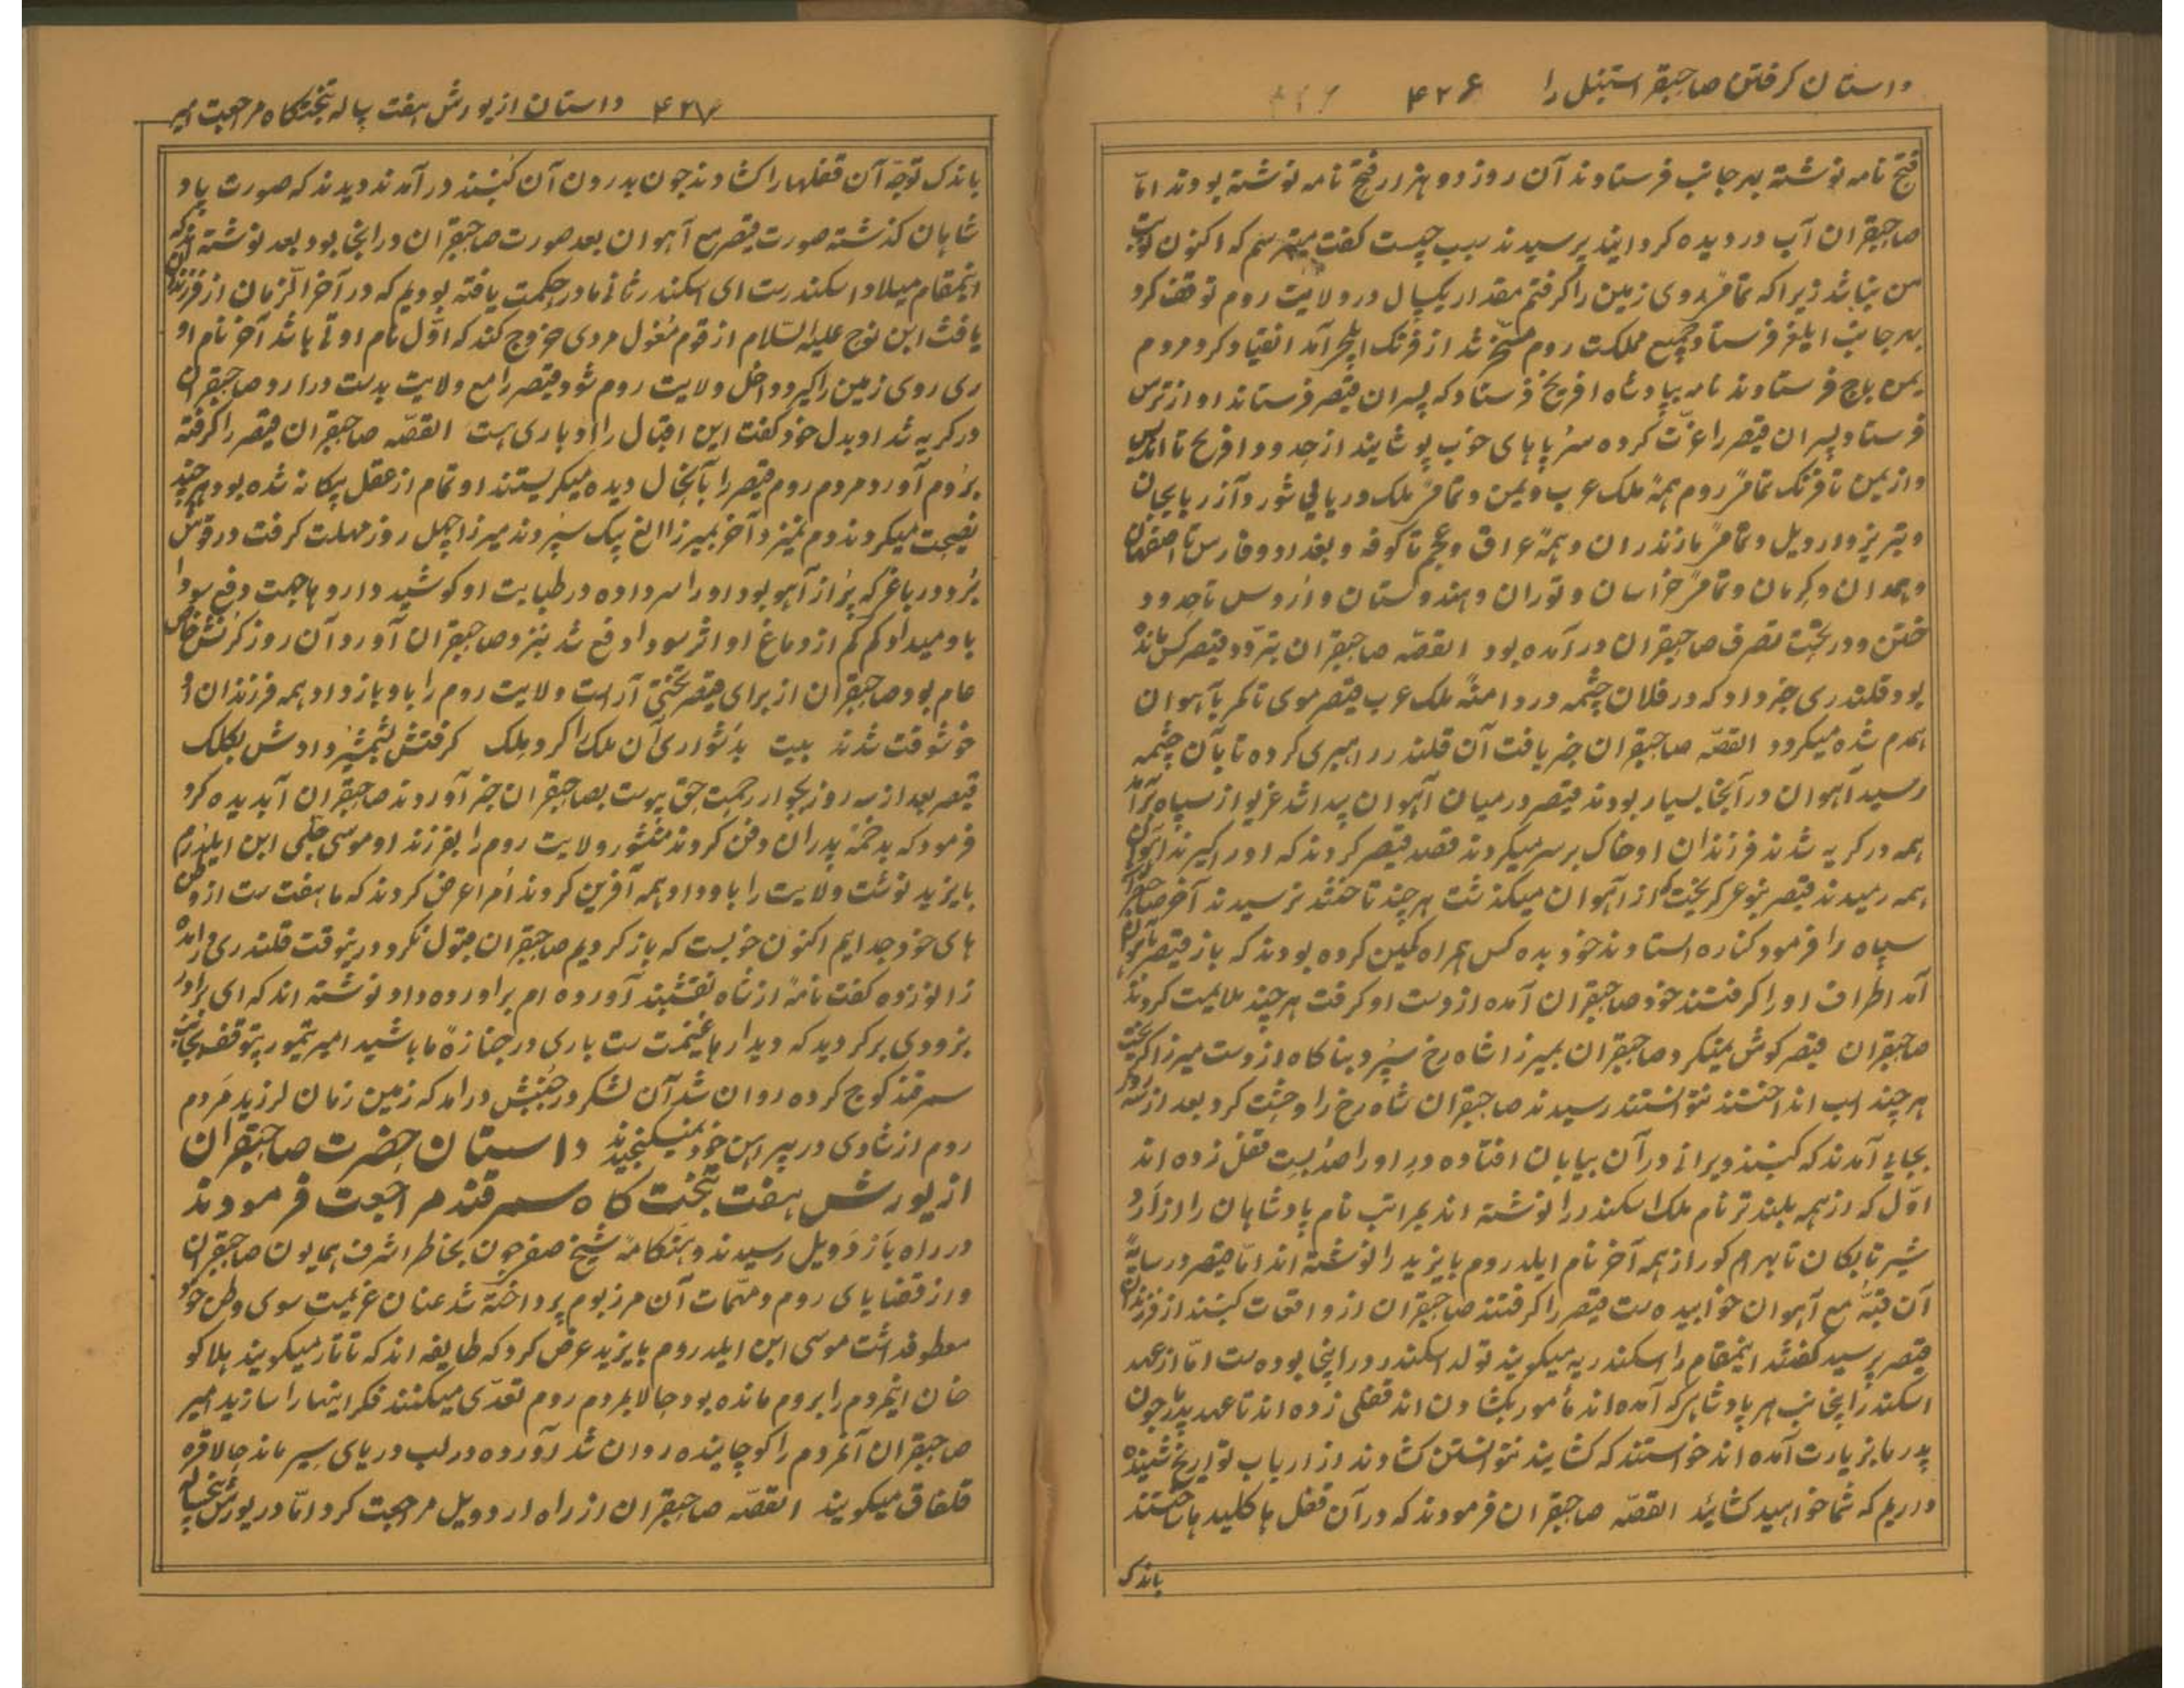 داستان کرفتن صاحبقر استنبل را ۴۲۶
فتح نامه نوشته بهر جانب فرستادند آن روز دو هزار فتح نامه نوشته بودند امّا
صاحبقران آب در دیده کردانید پرسیدند سبب چیست کفت میترسم که اکنون نوبت
من نباشد زیرا که تمام روی زمین را کرفتم مقدار یکسال در ولایت روم توقف کرد
بهر جانب ایلغر فرستاد جمیع مملکت روم مسخّر شد از فرنک ایلچر آمد انقیاد کرد مردم
یمن باج فرستادند نامه بپادشاه افرنج فرستاد که پسران قیصر فرستاند او از ترس
فرستاد پسران قیصر را عزّت کرده سرُپاهای خوب پوشانید از حدود افرنج تا اندلس
و از یمن تا فرنک تمام روم همهٔ ملک عرب و یمن و تمام ملک دریای شور و آذربایجان
و تبریز و اردبیل و تمام مازندران و همهٔ عراق و عجم تا کوفه و بغداد و فارس تا اصفهان
و همدان و کرمان و تمام خراسان و توران و هندوستان و اُروس تا حدود
ختن و در تحت تصرف صاحبقران در آمده بود القصّه صاحبقران بتردّد قیصر کس مانده
بود قلندری خبر داد که در فلان چشمه در دامنهٔ ملک عرب قیصر موی تا کمر با آهوان
همدم شده میکردد القصّه صاحبقران خبر یافت آن قلندر راهبری کرده تا بآن چشمه
رسید آهوان در آنجا بسیار بودند قیصر در میان آهوان پیدا شد غریو از سپاه برآمد
همه در کریه شدند فرزندان او خاک بر سر میکردند قصد قیصر کردند که او را کیرند آهوان
همه رمیدند قیصر بنوعر کریخت که از آهوان میکذشت هر چند تاختند نرسیدند آخر صاحبقران
سپاه را فرمود کناره استادند خود بده کس همراه کمین کرده بودند که باز قیصر با آهوان
آمد اطراف او را کرفتند خود صاحبقران آمده از دست او کرفت هر چند ملایمت کردند
صاحبقران قیصر کوش نمیکرد صاحبقران بمیرزا شاه رخ سپرد بناکاه از دست میرزا کریخت
هر چند اسب انداختند نتوانستند رسیدند صاحبقران شاه رخ را وحشت کرد بعد از سه روز
بجایی آمدند که کنبذ ویرانی در آن بیابان افتاده در او را صد بیست قفل زده اند
اوّل که از همه بلندتر نام ملک اسکندر را نوشته اند بمراتب نام پادشاهان را از اَرد
شیر تا بکان تا بهرام کور از همه آخر نام ایلدروم بایزید را نوشته اند امّا قیصر در سایهٔ
آن قبّه مع آهوان خوابیده ست قیصر را کرفتند صاحبقران از واقعات کنبذ از فرزندان
قیصر پرسید کفتند اینمقام را اسکندریه میکویند تولد اسکندر در اینجا بوده ست امّا از عهد
اسکندر اینجانب هر پادشاهر که آمده اند مأمور بکشادن اند قفلی زده اند تا عهد پدر ما چون
پدر ما بزیارت آمده اند خواستند که کشایند نتوانستن کشادند از ارباب تواریخ شنیده
داریم که شما خواهید کشائید القصّه صاحبقران فرمودند که در آن قفل ها کلید ها خاستند
باندک
۴۲۷ داستان از یورش هفت ساله بتختکاه مراجعت امیر
باندک توجّه آن قفلها را کشادند چون بدرون آن کنبذ در آمدند دیدند که صورت پاد
شاهان کذشته صورت قیصر مع آهوان بعد صورت صاحبقران در اینجا بود بعد نوشته اند که
اینمقام میلاد اسکندرست ای اسکندر ثانی ما در حکمت یافته بودیم که در آخر الزمان از فرزندان
یافث ابن نوح علیه السّلام از قوم مغول مردی خروج کند که اوّل نام او تا باشد آخر نام او
ری روی زمین را کیرد داخل ولایت روم شود قیصر را مع ولایت بدست درارد صاحبقران
در کریه شد او بدل خود کفت این اقبال را ادباری هست القصّه صاحبقران قیصر را کرفته
بروم آورد مردم روم قیصر را بآنحال دیده میکریستند او تمام از عقل بیکانه شده بود هر چند
نصیحت میکردند دم نمیزد آخر بمیرزا الغ بیک سپردند میرزا چهل روز مهلت کرفت در قوش
بُرد در باغر که پُر از آهو بود او را سر داده در طبابت او کوشید داروها جهت دفع سودا
باو میداد کم کم از دماغ او اثر سودا دفع شد بنزد صاحبقران آورد آن روز کُرنش خاص
عام بود صاحبقران از برای قیصر تختی آراست ولایت روم را باو باز داد همه فرزندان او
خوشوقت شدند بیت بدُشواری آن ملک را کرد ملک کرفتش بشمشیر و ادش بکلک
قیصر بعد از سه روز بجوار رحمت حق پیوست بصاحبقران خبر آوردند صاحبقران آبدیده کرد
فرمود که بدخمهٔ پدران دفن کردند منشور ولایت روم را بفرزند او موسی چلپی ابن ایلدرم
بایزید نوشت ولایت را باو داد همه آفرین کردند اُمرا عرض کردند که ما هفت ست از وطن
های خود جدایم اکنون خوبست که باز کردیم صاحبقران قبول نکرد درینوقت قلندری در آمده
زانو زده کفت نامهٔ از شاه نقشبند آورده ام براورده داد نوشته اند که ای برادر
بزودی برکردید که دیدارها غنیمت ست باری در جنازهٔ ما باشید امیر تیمور بیتوقف بجانب
سمرقند کوچ کرده روان شد آن لشکر در جنبش درامد که زمین زمان لرزید مردم
روم از شادی در پیراهن خود نمیکنجیدند داستان حضرت صاحبقران
از یورش هفت بتخت کاه سمرقند مراجعت فرمودند
در راه باَردَویل رسیدند و هنکامهٔ شیخ صفر چون بخاطر اشرف همایون صاحبقران
و از قضایای روم و مهمّات آن مرزبوم پرداخته شد عنان عزیمت سوی وطن خود
معطوف داشت موسی ابن ایلدروم بایزید عرض کرد که طایفه اند که تاتار میکویند هلاکو
خان اینمردم را بروم مانده بود حالا بمردم روم تعدّی میکنند فکر اینها را سازید امیر
صاحبقران آنمردم را کوچانیده روان شد آورده در لب دریای سیر ماند حالا قره
قلفاق میکویند القصّه صاحبقران از راه اردویل مراجعت کرد امّا در یورش پنجساله